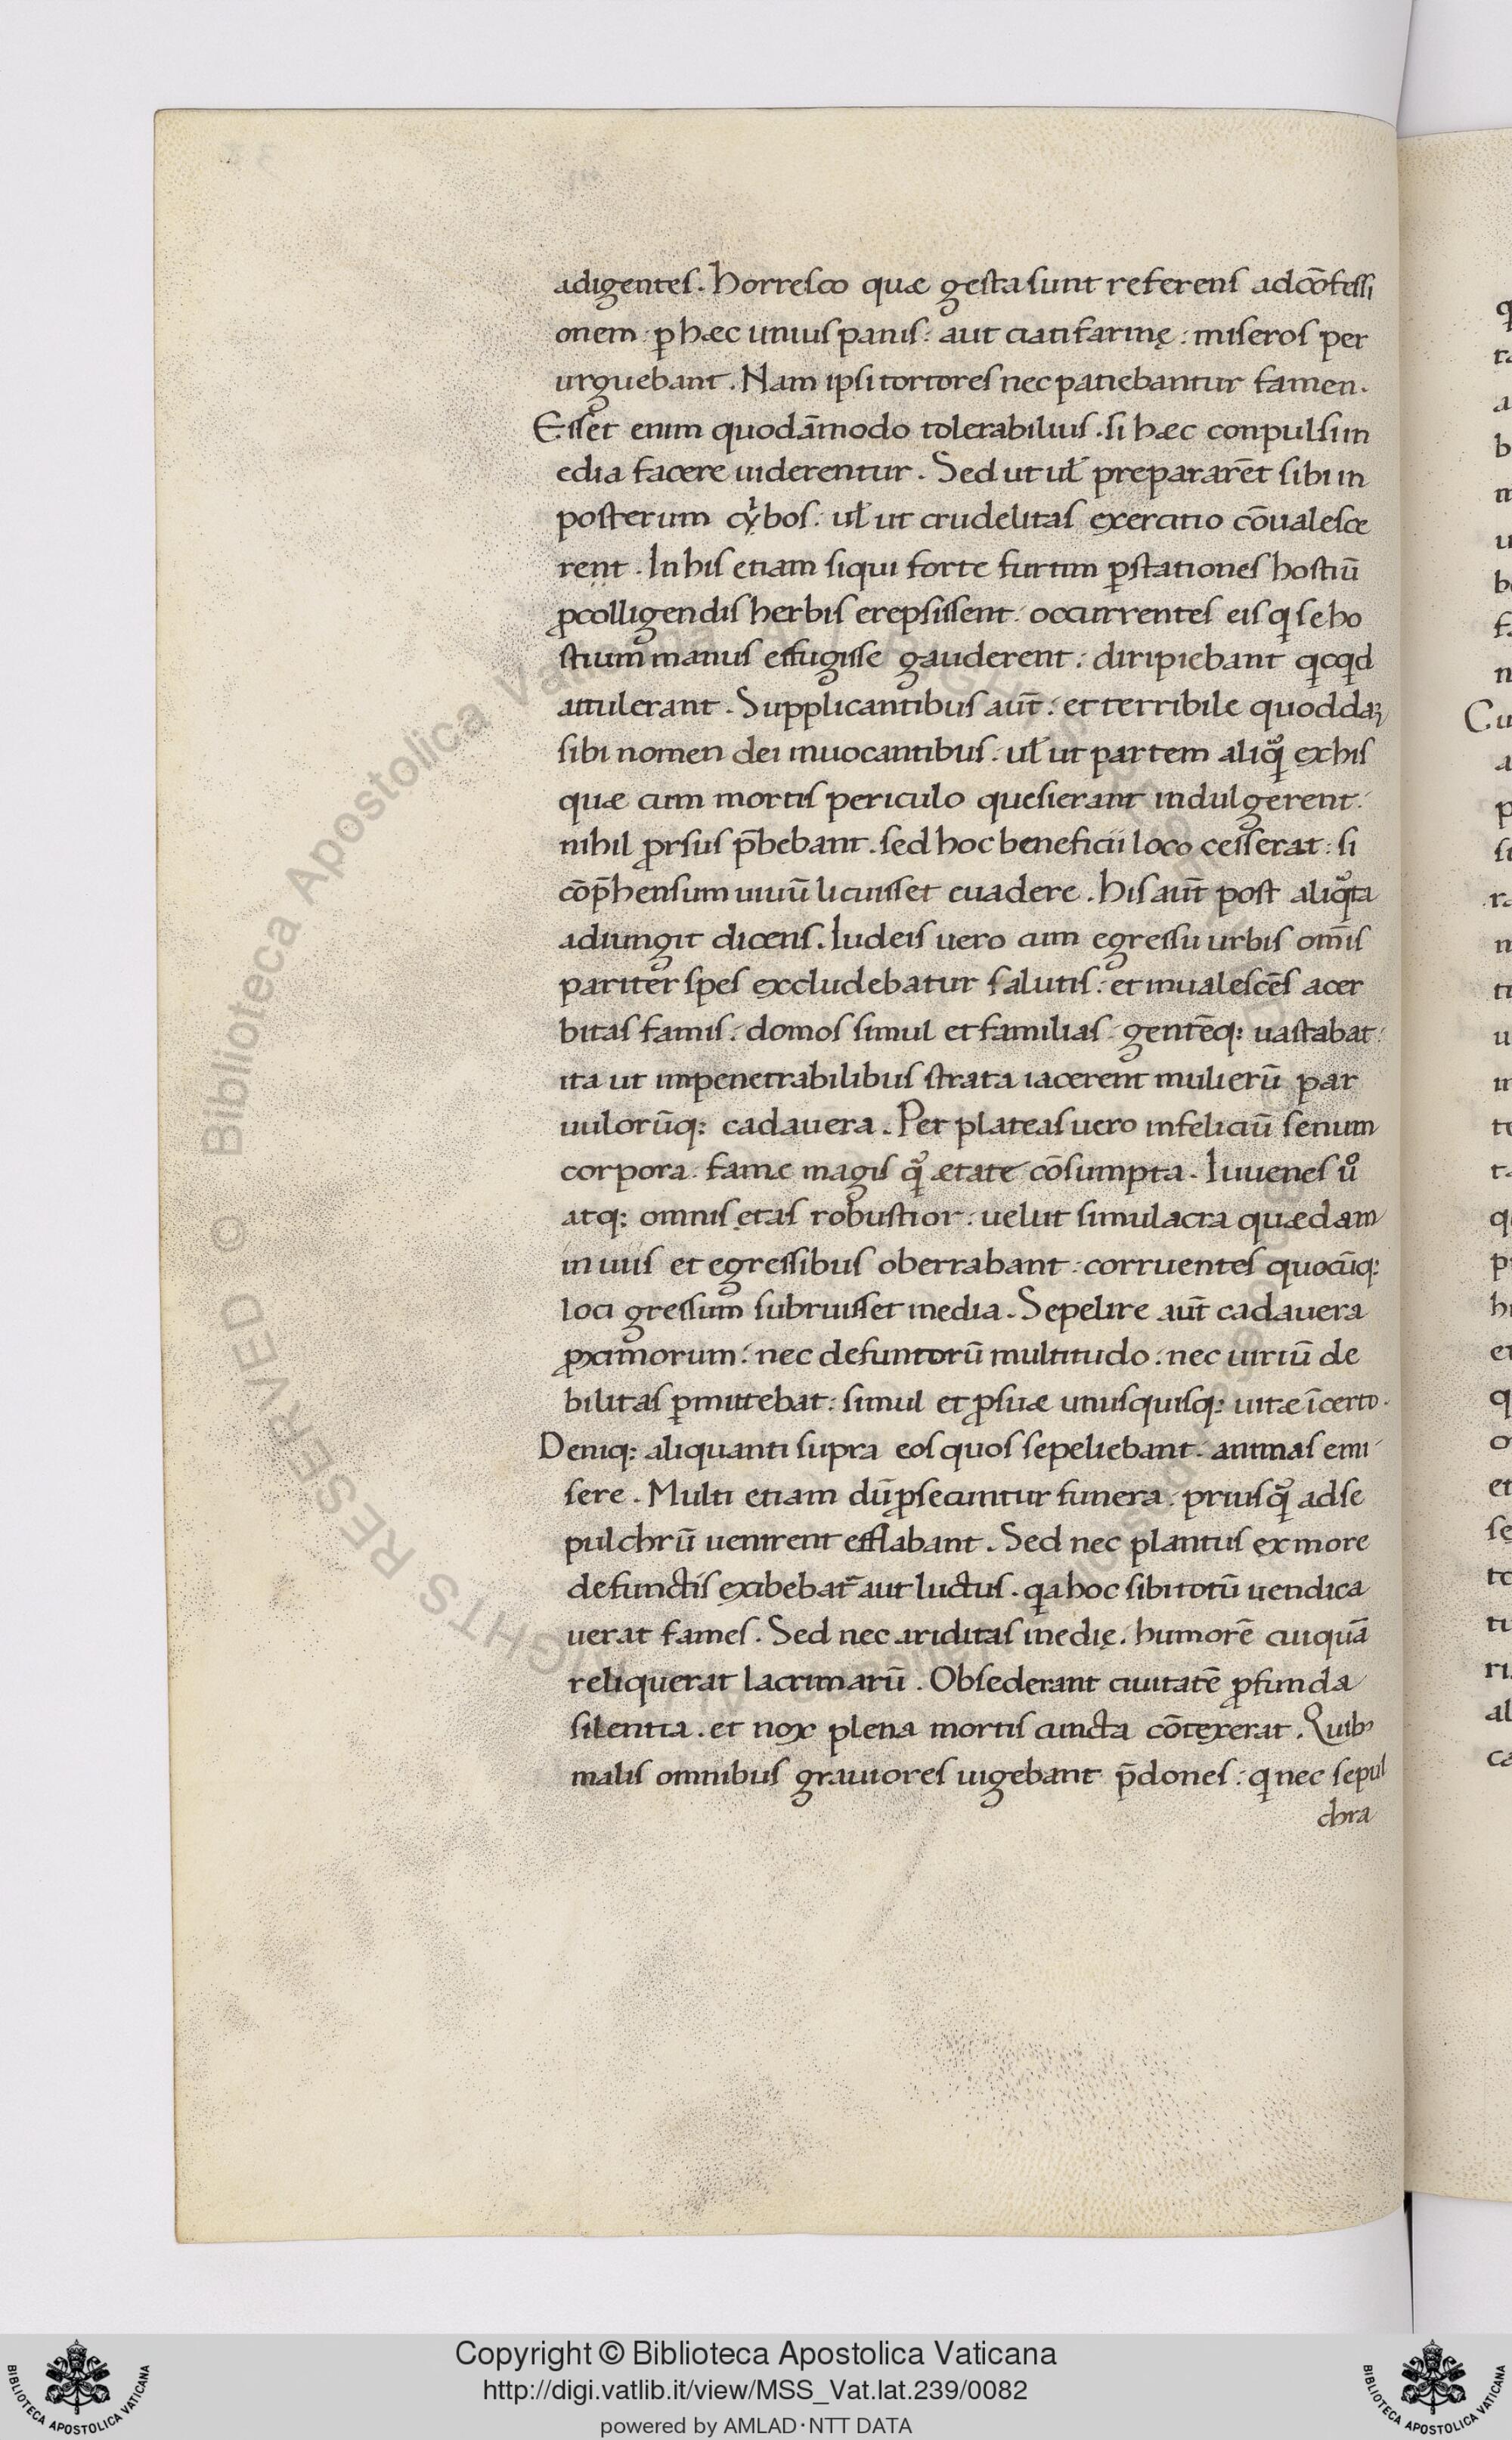 adigentes. Horresco quæ gesta sunt referens ad cõfessi
onem p̱ hæc unius panis: aut ciati farinę: miseros per
urguebant. Nam ipsi tortores nec patiebantur famen.
Esset enim quodãmodo tolerabilius. si hæc conpulsi in
edia facere uiderentur. Sed ut ul̃ prepararẽt sibi in
posterum cẏbos: ul̃ ut crudelitas exercitio cõualesce
rent. In his etiam siqui forte furtim ꝑ stationes hostiũ
ꝓ colligendis herbis erepsissent: occurrentes eis q̇ se ho
stium manus effugisse gauderent: diripiebant qcqd
attulerant. Supplicantibus aut̃: et terribile quoddaꝫ
sibi nomen dei inuocantibus: ul̃ ut partem aliq̃ ex his
quæ cum mortis periculo quesierant indulgerent:
nihil ꝓrsus p̃bebant. sed hoc beneficii loco cesserat: si
cõp̃hensum uiuũ licuisset euadere. His aut̃ post aliq̃ta
adiungit dicens. Iudeis uero cum egressu urbis om̃is
pariter spes excludebatur salutis: et inualescẽs acer
bitas famis: domos simul et familias gentẽq: uastabat:
ita ut inpenetrabilibus strata iacerent mulierũ par
uulorũq: cadauera. Per plateas uero infeliciũ senum
corpora. fame magis q̃ ætate cõsumpta. Iuuenes uº
atq: omnis ętas robustior: uelut simulacra quædam
in uiis et egressibus oberrabant: corruentes quocũq:
loci gressum subruisset inedia. Sepelire aut̃ cadauera
ꝓximorum: nec defuntorũ multitudo: nec uiriũ de
bilitas ꝑmittebat: simul et ꝓ suæ unusquisq: uitæ ĩcerto.
Deniq: aliquanti supra eos quos sepeliebant: animas emi
sere. Multi etiam dũ ꝓsecuntur funera: priusq̃ ad se
pulchrũ uenirent efflabant. Sed nec plantus ex more
defunctis exibebat̃ aut luctus. qa hoc sibi totũ uendica
uerat fames. Sed nec ariditas inedię. humorẽ cuiquã
reliquerat lacrimarũ. Obsederant ciuitatẽ ꝓfunda
silentia. et nox plena mortis cuncta cõtexerat. Quibꝰ
malis omnibus grauiores uigebant p̃dones: q nec sepul
chra
Copyright © Biblioteca Apostolica Vaticana
http://digi.vatlib.it/view/MSS_Vat.lat.239/0082
powered by AMLAD·NTT DATA